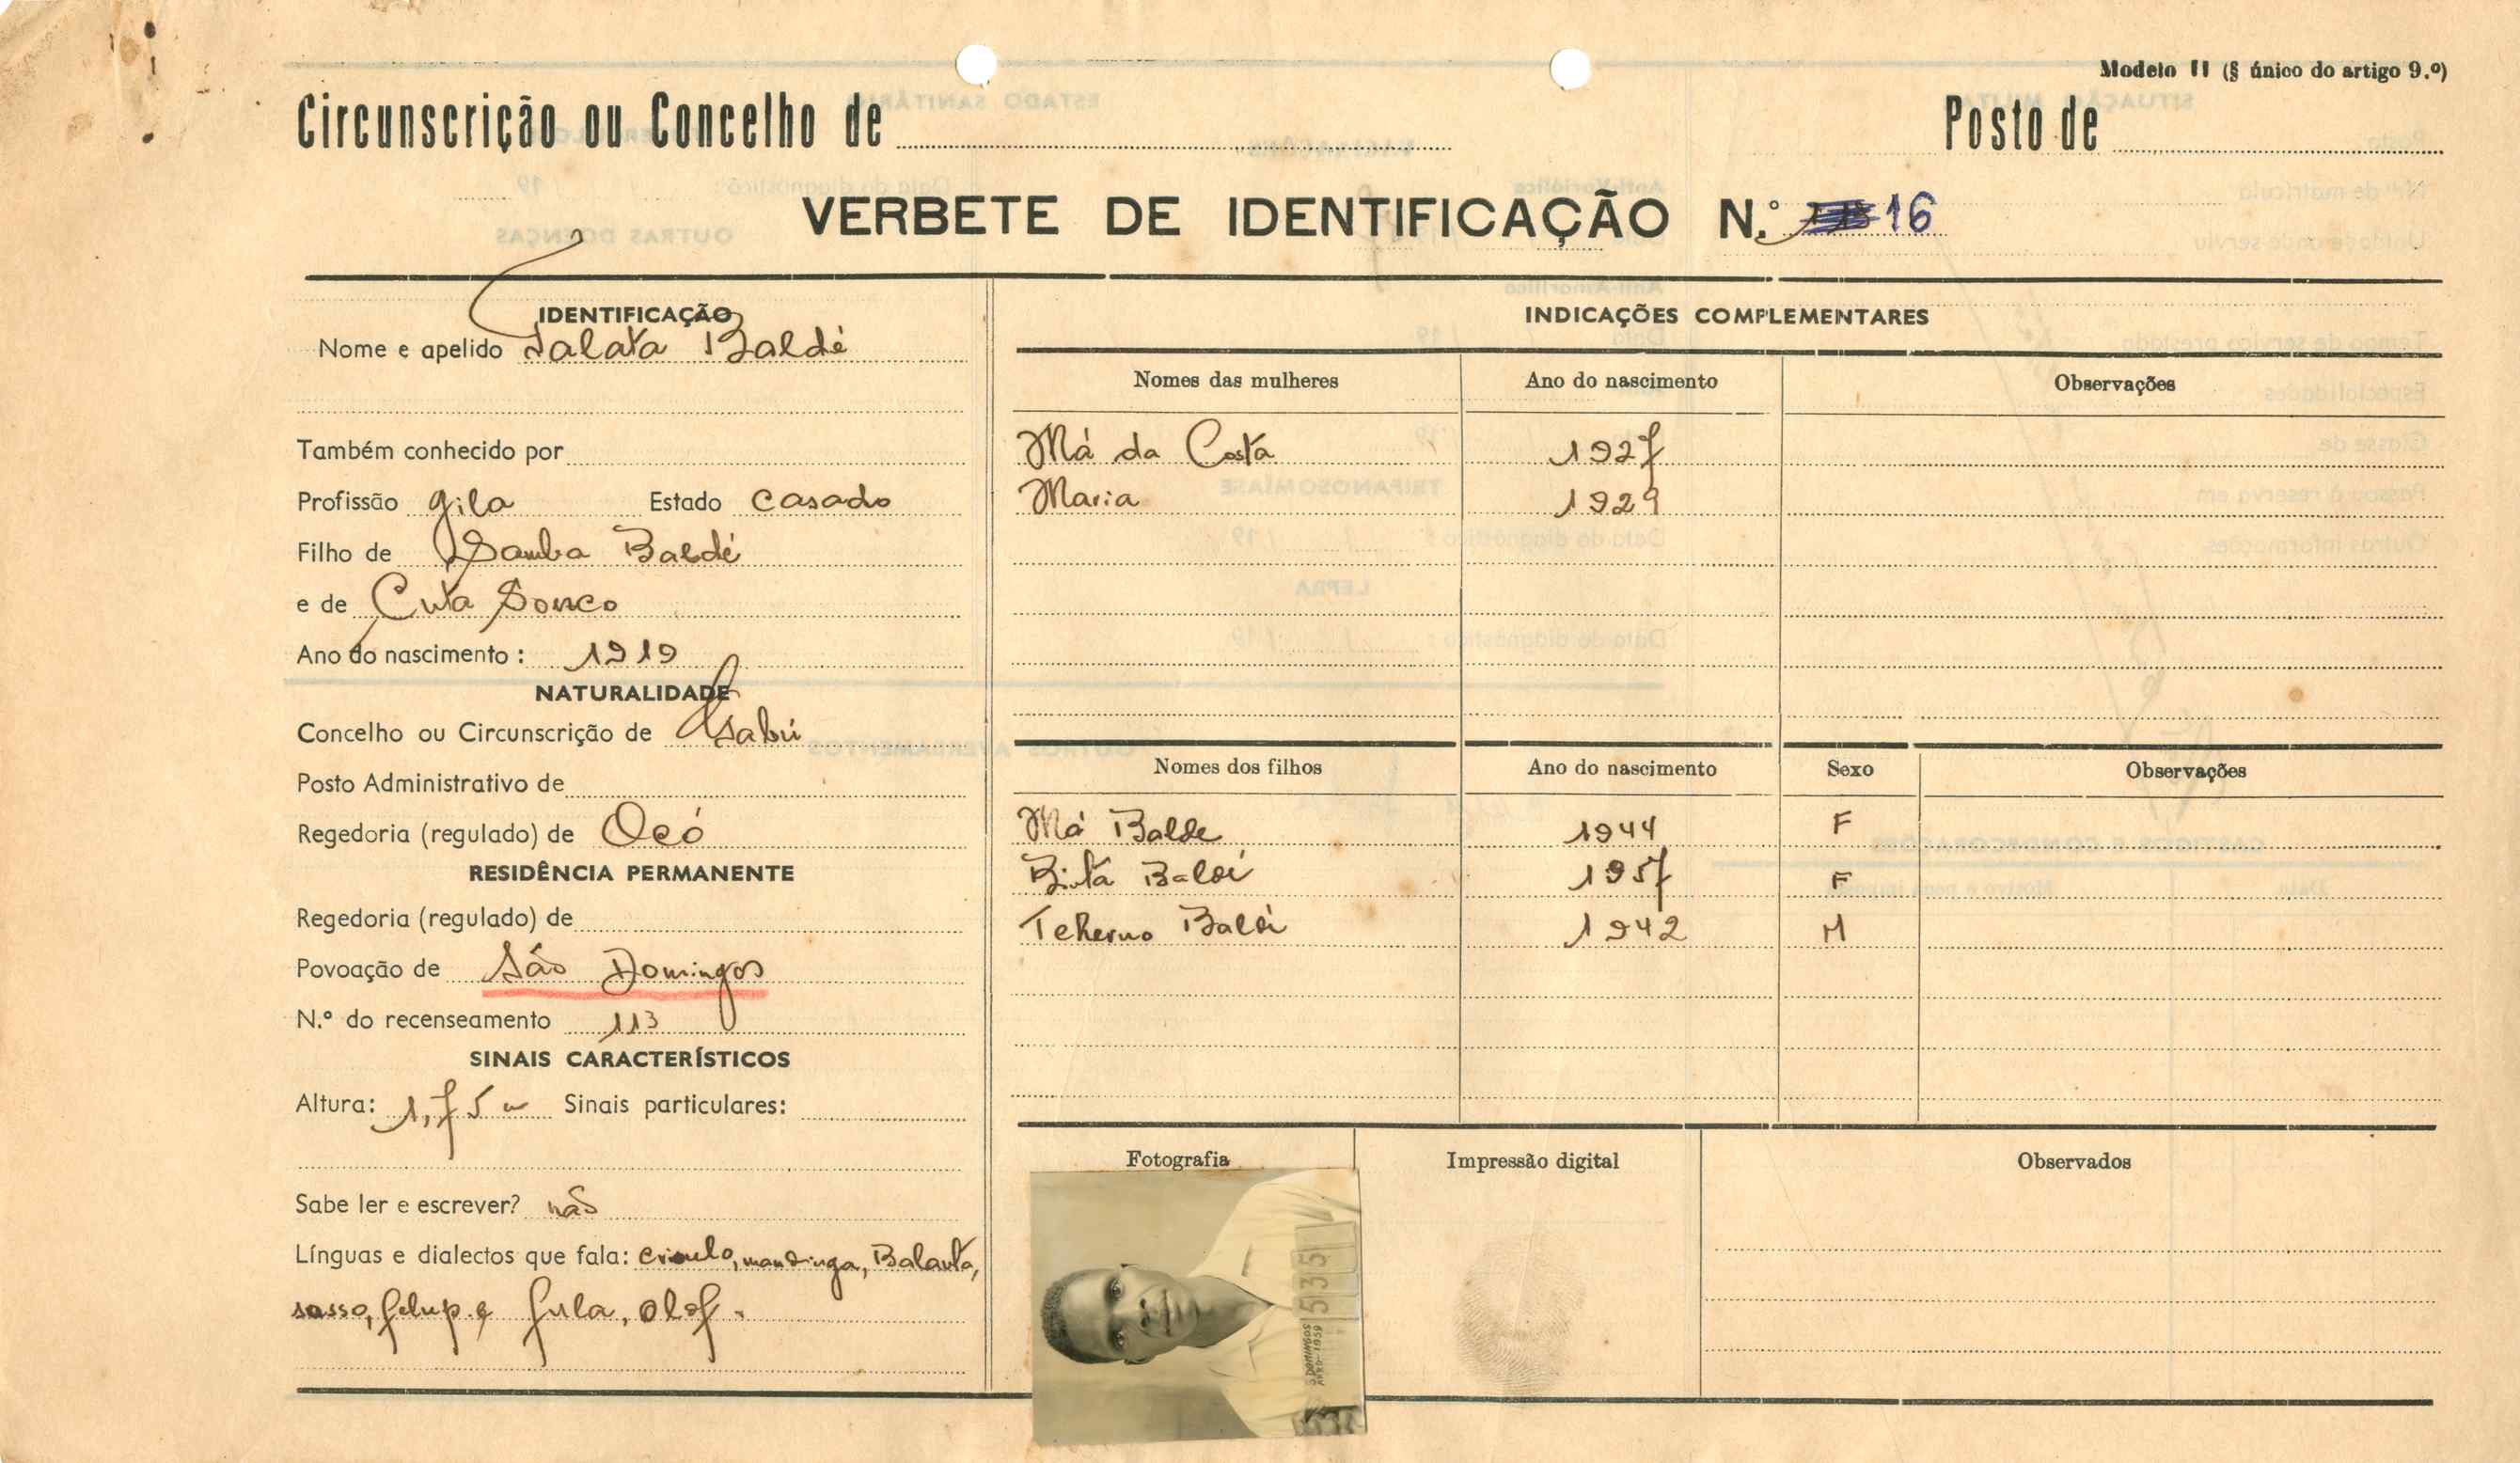 Modelo II (§ único do artigo 9.º)
Circunscrição ou Concelho de
Posto de
VERBETE DE IDENTIFICAÇÃO N.º 16
IDENTIFICAÇÃO
Nome e apelido Salata Baldé
Também conhecido por
Profissão gila Estado casado
Filho de Samba Baldé
e de Cuta Sonco
Ano do nascimento: 1919
NATURALIDADE
Concelho ou Circunscrição de Gabú
Posto Administrativo de
Regedoria (regulado) de Ocó
RESIDÊNCIA PERMANENTE
Regedoria (regulado) de
Povoação de São Domingos
N.º do recenseamento 113
SINAIS CARACTERÍSTICOS
Altura: 1,75 m Sinais particulares:
Sabe ler e escrever? não
Línguas e dialectos que fala: crioulo, mandinga, Balanta,
sosso, felupe fula, olof.
INDICAÇÕES COMPLEMENTARES
Nomes das mulheres Ano do nascimento Observações
Má da Costa 1927
Maria 1929
Nomes dos filhos Ano do nascimento Sexo Observações
Má Balde 1944 F
Binta Baldé 1957 F
Tcherno Baldé 1942 M
Fotografia Impressão digital Observados
5535
S. DOMINGOS
1959